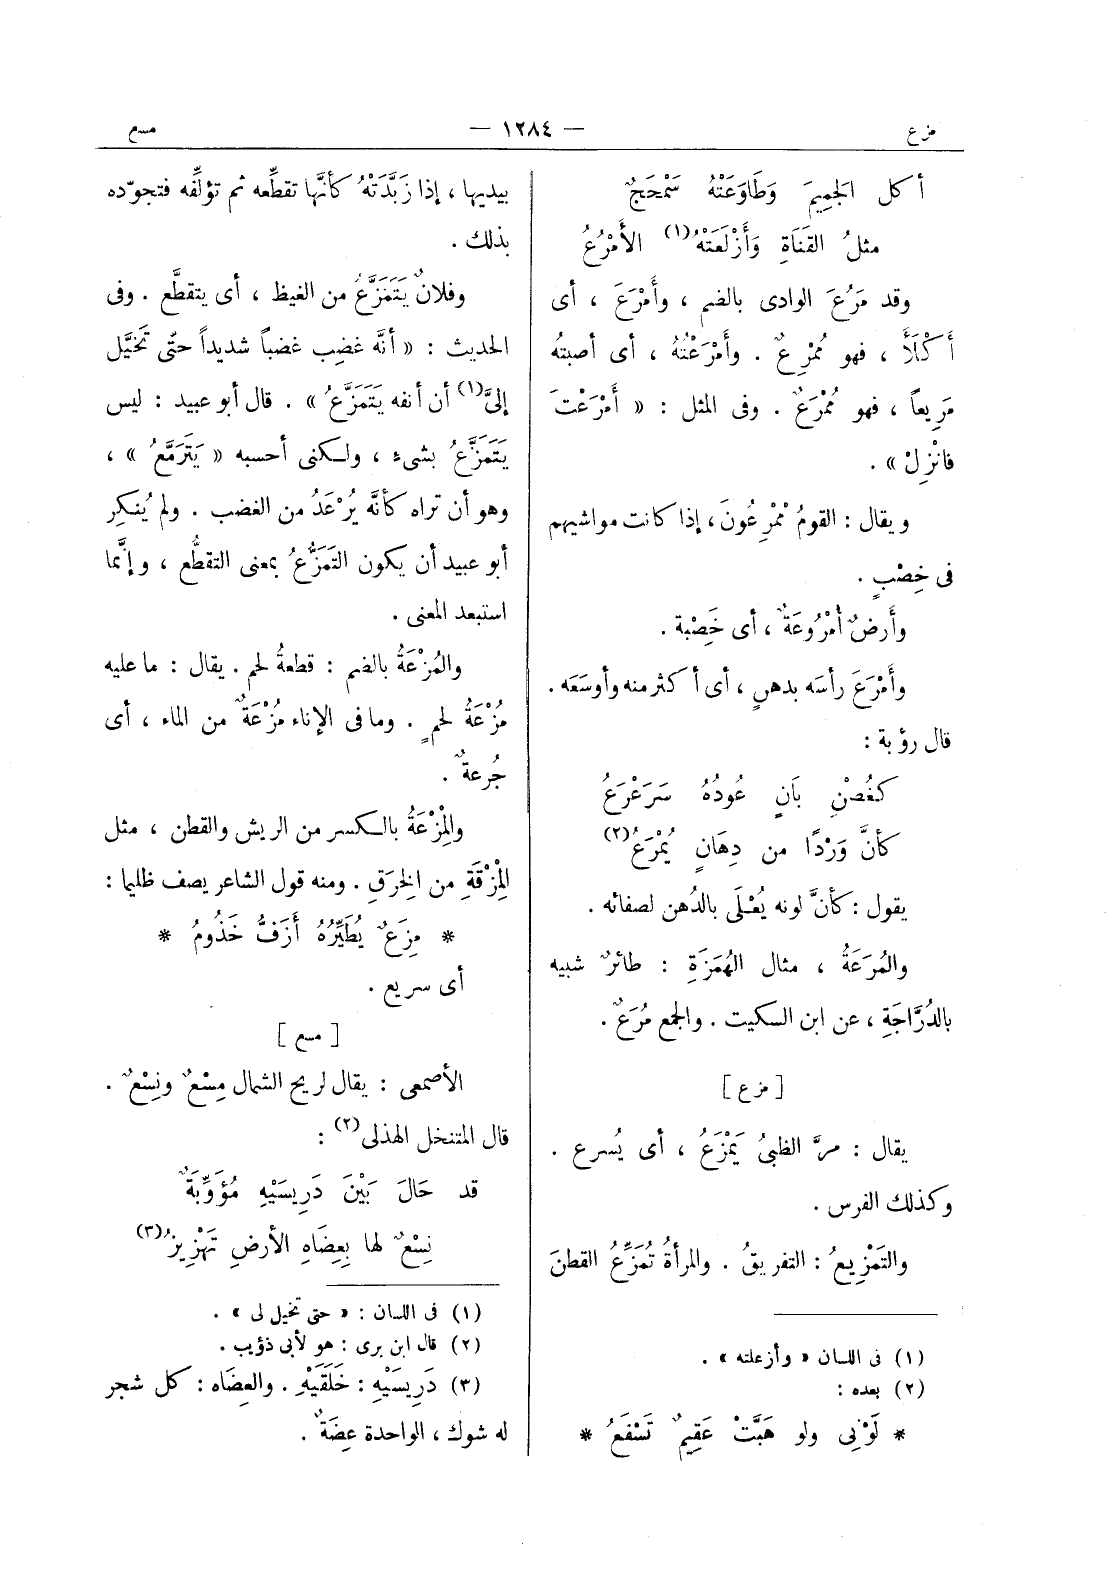 مزع — ١٢٨٤ — مسع
أكل الجَمِيمَ وَطَاوَعَتْهُ سَمْحَجٌ
مثلُ القَنَاةِ وَأَزْلَعَتْهُ(١) الأَمْرُعُ
وقد مَرُعَ الوادى بالضم ، وأَمْرَعَ ، أى
أَكْلَأَ ، فهو مُمْرِعٌ . وأَمْرَعْتُهُ ، أى أصبتُه
مَرِيعاً ، فهو مُمْرَعٌ . وفى المثل : « أَمْرَعْتَ
فانْزِلْ » .
ويقال : القومُ مُمْرِعُونَ ، إذا كانت مواشيهم
فى خِصْبٍ .
وأَرضٌ أُمْرُوعَةٌ ، أى خَصِبة .
وأَمْرَعَ رأسَه بدهنٍ ، أى أكثر منه وأوسَعَه .
قال رؤبة :
كغُصْنِ بَانٍ عُودُهُ سَرَعْرَعُ
كأنَّ وَرْدًا من دِهَانٍ يُمْرَعُ(٢)
يقول : كأنَّ لونه يُعْلَى بالدُهن لصفائه .
والمُرَعَةُ ، مثال الهُمَزَةِ : طائرٌ شبيه
بالدُرَّاجَةِ ، عن ابن السكيت . والجمع مُرَعٌ .
[ مزع ]
يقال : مرَّ الظبىُ يَمْزَعُ ، أى يُسرع .
وكذلك الفرس .
والتَمْزِيعُ : التفريقُ . والمرأةُ تُمَزِّعُ القطنَ
(١) فى اللسان « وأزعلته » .
(٢) بعده :
* لَوْنِى ولو هَبَّتْ عَقِيمٌ تَسْفَعُ *
بيديها ، إذا زَبَّدَتْهُ كأنَّها تقطِّعه ثم تؤلِّفه فتجوّده
بذلك .
وفلانٌ يَتَمَزَّعُ من الغيظ ، أى يتقطَّع . وفى
الحديث : « أنَّه غضِب غضباً شديداً حتَّى تَخَيَّل
إلىَّ(١) أن أنفه يَتَمَزَّعُ » . قال أبو عبيد : ليس
يَتَمَزَّعُ بشىء ، ولكنى أحسبه « يَتَرَمَّعُ » ،
وهو أن تراه كأنَّه يُرْعَدُ من الغضب . ولم يُنكِر
أبو عبيد أن يكون التَمَزُّعُ بمعنى التقطُّع ، وإنَّما
استبعد المعنى .
والمُزْعَةُ بالضم : قطعةُ لحم . يقال : ما عليه
مُزْعَةُ لحمٍ . وما فى الإناء مُزْعَةٌ من الماء ، أى
جُرعةٌ .
والمِزْعَةُ بالكسر من الريش والقطن ، مثل
المِزْقَةِ من الخِرَقِ . ومنه قول الشاعر يصف ظليما :
* مِزَعٌ يُطَيِّرُهُ أَزَفُّ خَذُومُ *
أى سريع .
[ مسع ]
الأصمعى : يقال لريح الشمال مِسْعٌ ونِسْعٌ .
قال المتنخل الهذلى(٢) :
قد حَالَ بَيْنَ دَرِيسَيْهِ مُؤَوِّبَةٌ
نِسْعٌ لها بِعِضَاهِ الأرضِ تَهْزِيزُ(٣)
(١) فى اللسان : « حتى تخيل لى » .
(٢) قال ابن برى : هو لأبى ذؤيب .
(٣) دَرِيسَيْهِ : خَلَقَيْهِ . والعِضَاه : كل شجر
له شوك ، الواحدة عِضَةٌ .